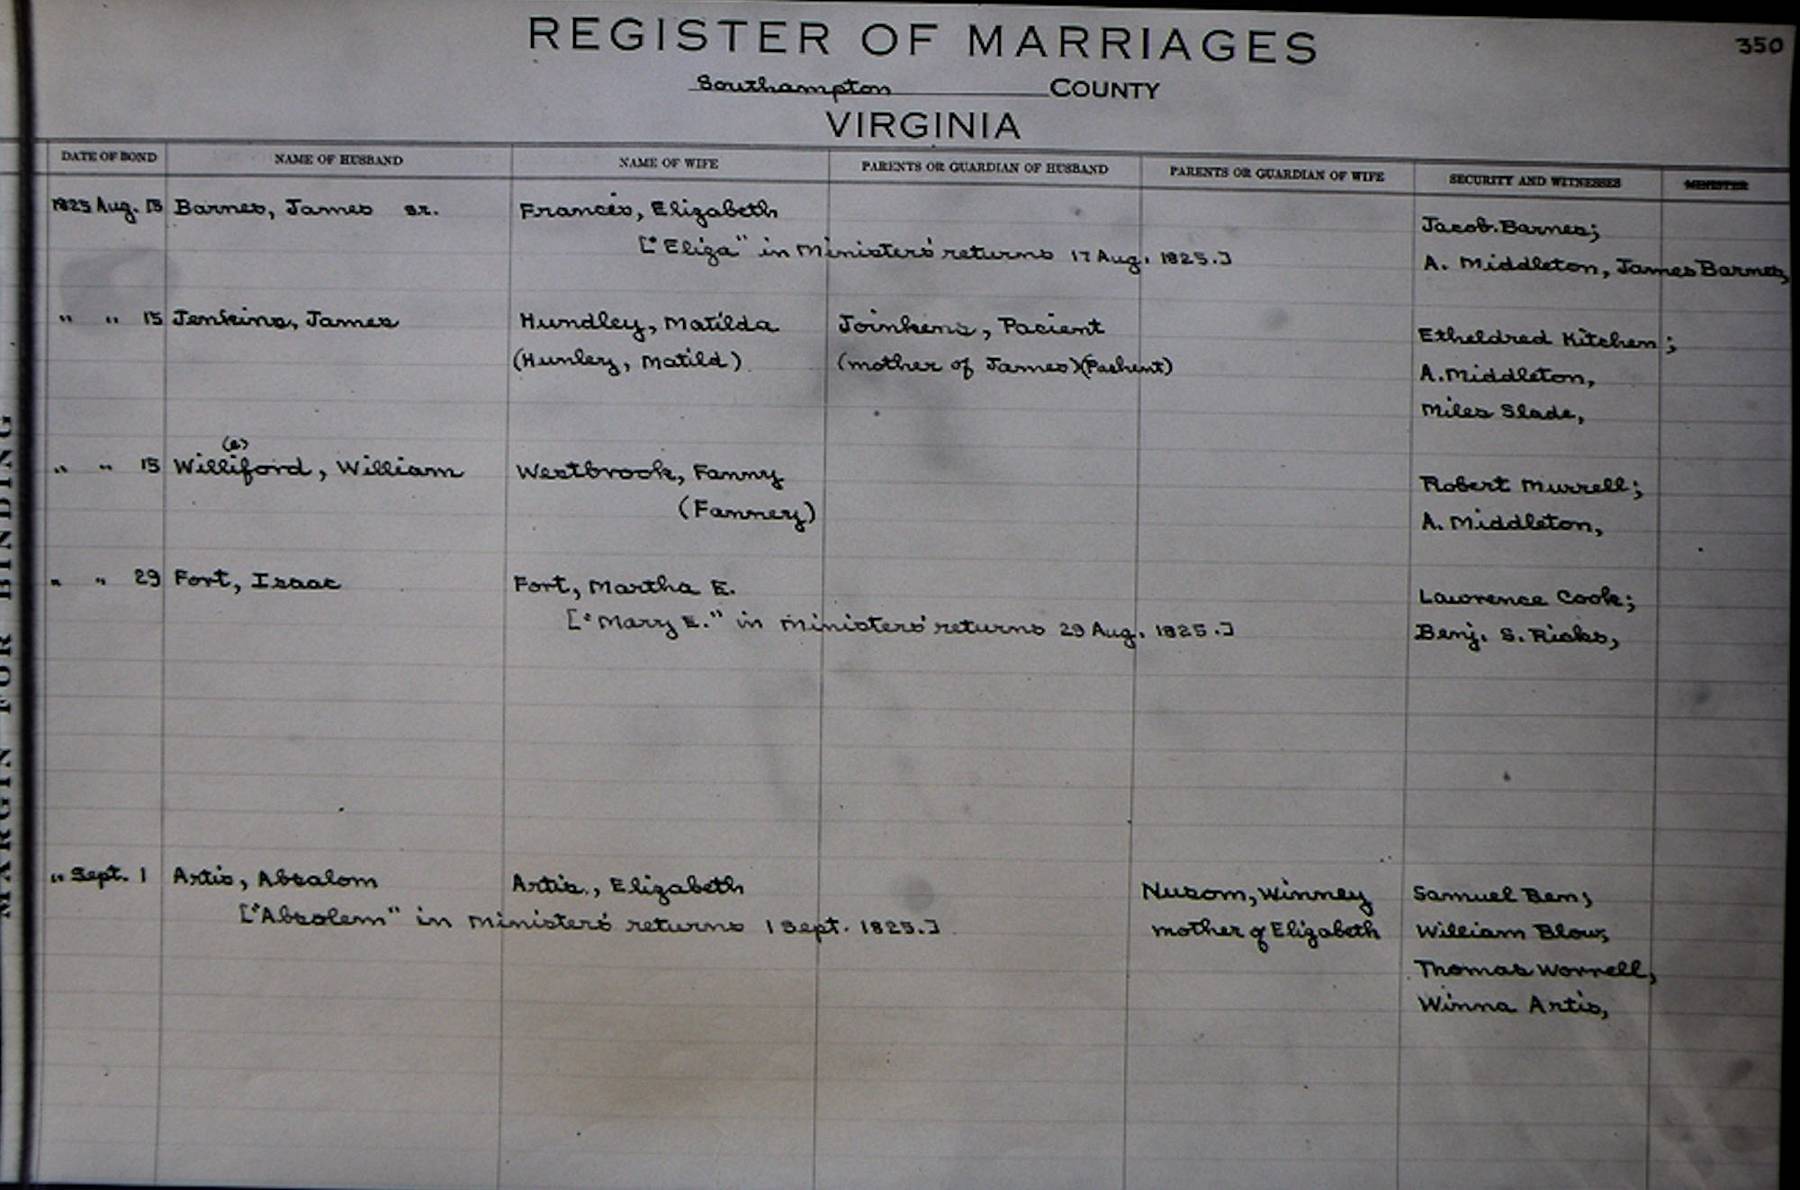 REGISTER OF MARRIAGES 350
Southampton COUNTY
VIRGINIA
DATE OF BOND NAME OF HUSBAND NAME OF WIFE PARENTS OR GUARDIAN OF HUSBAND PARENTS OR GUARDIAN OF WIFE SECURITY AND WITNESSES MINISTER
1825 Aug. 15 Barnes, James sr. Frances, Elizabeth Jacob Barnes;
["Eliza" in Ministers' returns 17 Aug. 1825.] A. Middleton, James Barnes,
" " 15 Jenkins, James Hundley, Matilda Joinkens, Pacient Etheldred Kitchen;
(Hunley, Matild) (mother of James) (Pashent) A. Middleton,
Miles Slade,
(e)
" " 15 Williford, William Westbrook, Fanny Robert Murrell;
(Fannery) A. Middleton,
" " 29 Fort, Isaac Fort, Martha E. Lawrence Cook;
["Mary E." in Ministers' returns 29 Aug. 1825.] Benj. S. Ricks,
" Sept. 1 Artis, Absalom Artis., Elizabeth Nusom, Winney Samuel Benn;
["Absolem" in Ministers' returns 1 Sept. 1825.] mother of Elizabeth William Blow,
Thomas Worrell,
Winna Artis,
MARGIN FOR BINDING